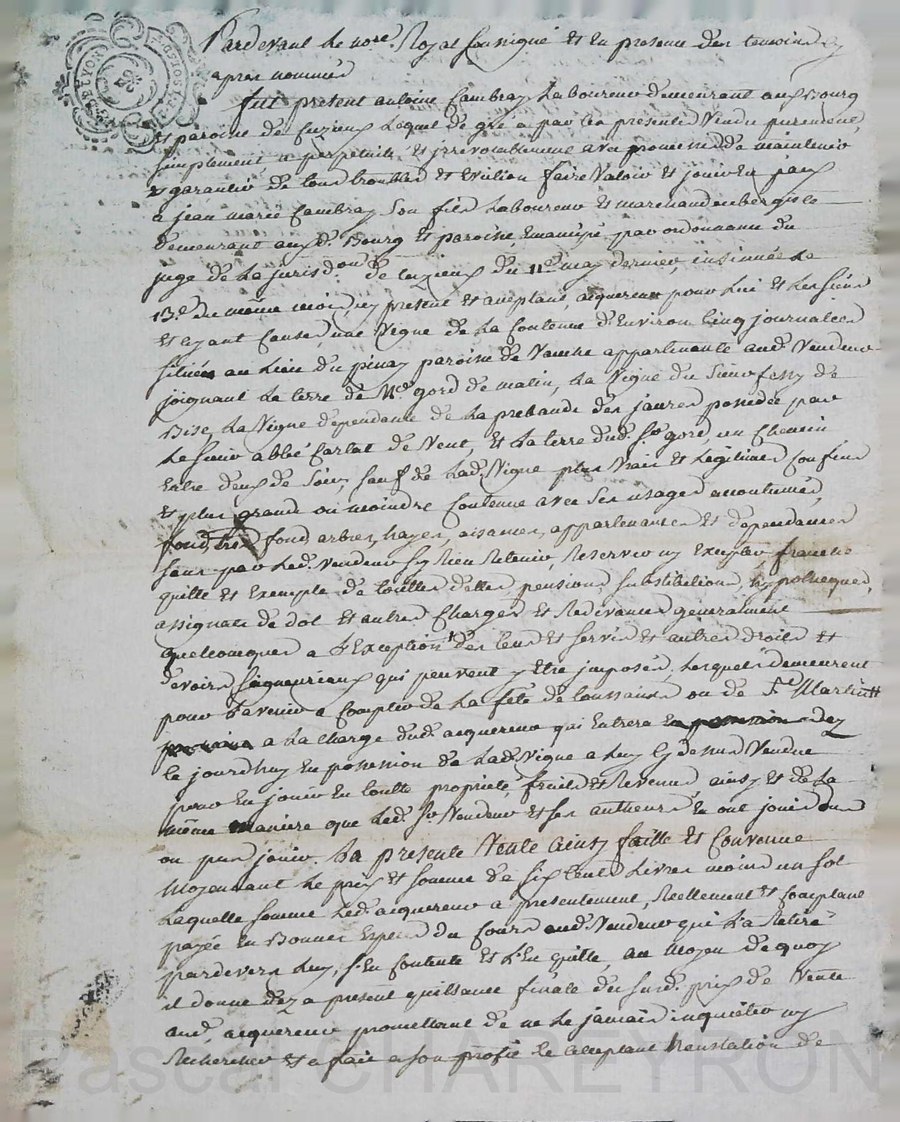 Pardevant le no.re Royal soussigné et en presence des temoins cy
apres nommés
fut present antoine Cambray Laboureur demeurant aux Bourg
et paroisse de Cuzieux Lequel de gré a par ces presentes Vendu purement
simplement a perpetuité et irrevocablement avec promesse de maintenir
et garantir de tous troubles et Eviction faire Valoir et jouir En paix
a jean marie Cambray son fils Laboureur et marchand aubergiste
demeurant auxd. Bourg et paroisse, Emancipé par ordonnance du
juge de La jurisdon de Cuzieux du 11e may dernier, insinuée Le
13e du même mois, cy present et aceptant, aiquereur pour Lui et Les siens
et ayant Cause une Vigne de La Contenue d'Environ Cinq journalées
située au Lieu du pinay paroisse de appartenante aud. Vendeur
joignant La terre de Mr. gord de matin, La Vigne du Sieur de
Bise, La Vigne dependante de La prebande des jaures possedée par
Le sieur abbé Carlat de Vent, et La terre dud. Sr. gord, un Chemin
Entre deux de soir, sauf de Lad. Vigne plus Vrais et Legitimes Confins
et plus grande ou moindre Contenue avec ses usages accoutumés,
fond, tres fond, arbres, hayes, aisances, appartenances et dependances
sans par Led. Vendeur s'y Rien Retenir, Reserver ny Excepter franche
quitte et Exempte de touttes dettes, pensions, substitutions, hypotheques,
assignats de dot et autres Charges et Redevances generalment
quelconques a L'Exception des Cens et servis et autres droits et
devoirs seigneuriaux qui peuvent y Etre imposés, Lesquels demeurent
pour L'avenir a Compter de La fête de toussaints ou de St. Martin
a La charge dud. acquereur qui Entrera En possession dez
le jourdhuy En possession de Lad. Vigne a Luy Cy dessus Vendue
pour En jouir En toutte proprieté, fruits et Revenus, ainsy et de La
même maniere que Led. Sr. Vendeur et ses autheurs En ont joui ou
ou pu jouir. La presente Vente ainsy faitte et Convenue
Moyennant Le prix et somme de six Cents Livres moins un sol
Laquelle somme Led. acquereur a presentement, Reellement et Comptant
payée En Bonnes Especes du Cours aud. Vendeur qui L'a Retiré
pardevers Luy, s'En Contente et L'En quitte, au moyen de quoy
il donne dez a present quittance finale du susd. prix de Vente
aud. acquereur promettant de ne Le jamais inquieter ny
Rechercher et a fait a son profit Le acceptant translation de
Pascal CHAREYRON